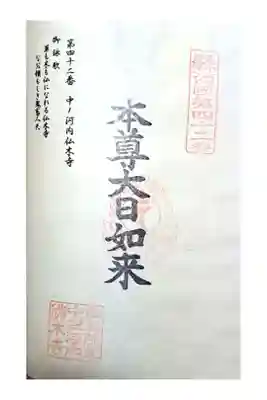 本尊大日如来
第四十二番 中ノ河内仏木寺
御詠歌
草も木も仏になれる仏木寺
なお頼もしき鬼畜人天